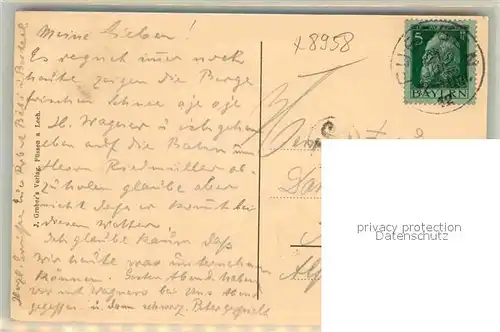 Meine Lieben!
Es regnet immer noch
heute zeigen die Berge
frischen Schnee oje oje
H. Wagner u ich gehen
eben auf die Bahn um
Herrn Riedmüller ab-
zuholen glaube aber
nicht daß er kommt bei
diesem Wetter.
Ich glaube kaum daß
wir heute was unternehmen
können. Ersten Abend haben
wir mit Wagners bei uns Abend
gegessen u. dann schwarz. Peter gespielt
Herzl. Grüße Euer Robert
J. Gruber's Verlag, Füssen a. Lech.
x 8958
5
BAYERN
privacy protection
Datenschutz